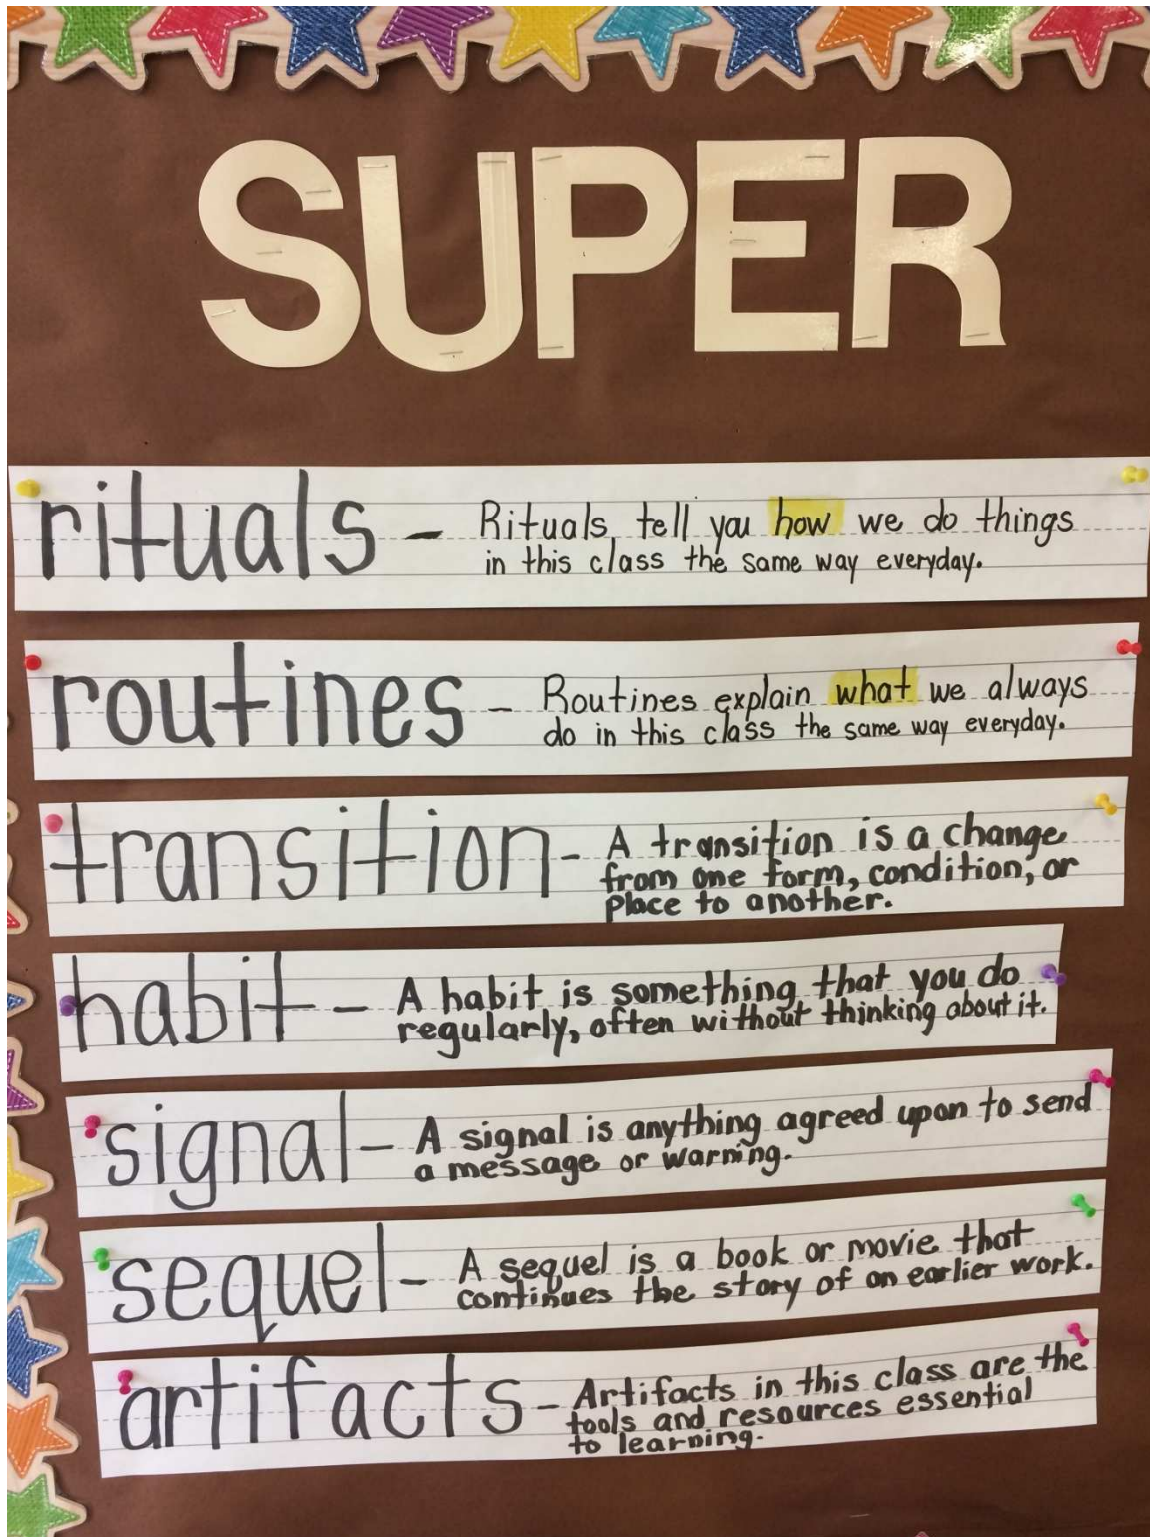 SUPER
rituals - Rituals tell you how we do things
in this class the same way everyday.
routines - Routines explain what we always
do in this class the same way everyday.
transition - A transition is a change
from one form, condition, or
place to another.
habit - A habit is something that you do
regularly, often without thinking about it.
signal - A signal is anything agreed upon to send
a message or warning.
sequel - A sequel is a book or movie that
continues the story of an earlier work.
artifacts - Artifacts in this class are the
tools and resources essential
to learning.